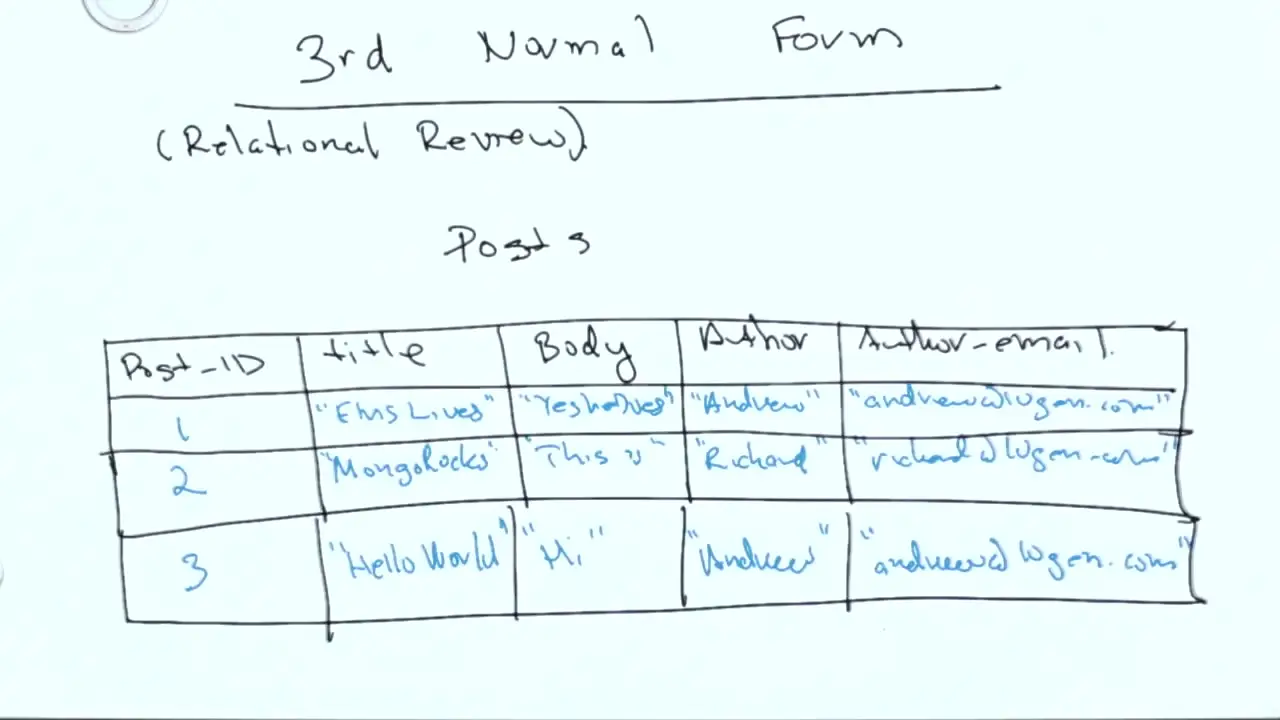 3rd Normal Form
(Relational Review)
Posts
Post-ID title Body Author Author-email.
1 "Elvis Lives" "Yes he does" "Andrew" "andrew@10gen.com"
2 "MongoRocks" "This is" "Richard" "richard@10gen.com"
3 "Hello World" "Hi" "Andrew" "andrew@10gen.com"